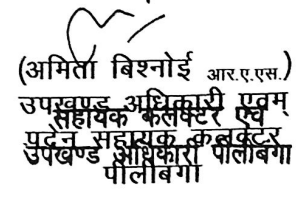 (अमिता बिश्नोई आर.ए.एस.)
उपखण्ड अधिकारी एवम्
सहायक कलेक्टर एवं
पदेन सहायक कलेक्टर
उपखण्ड अधिकारी पीलीबंगा
पीलीबंगा